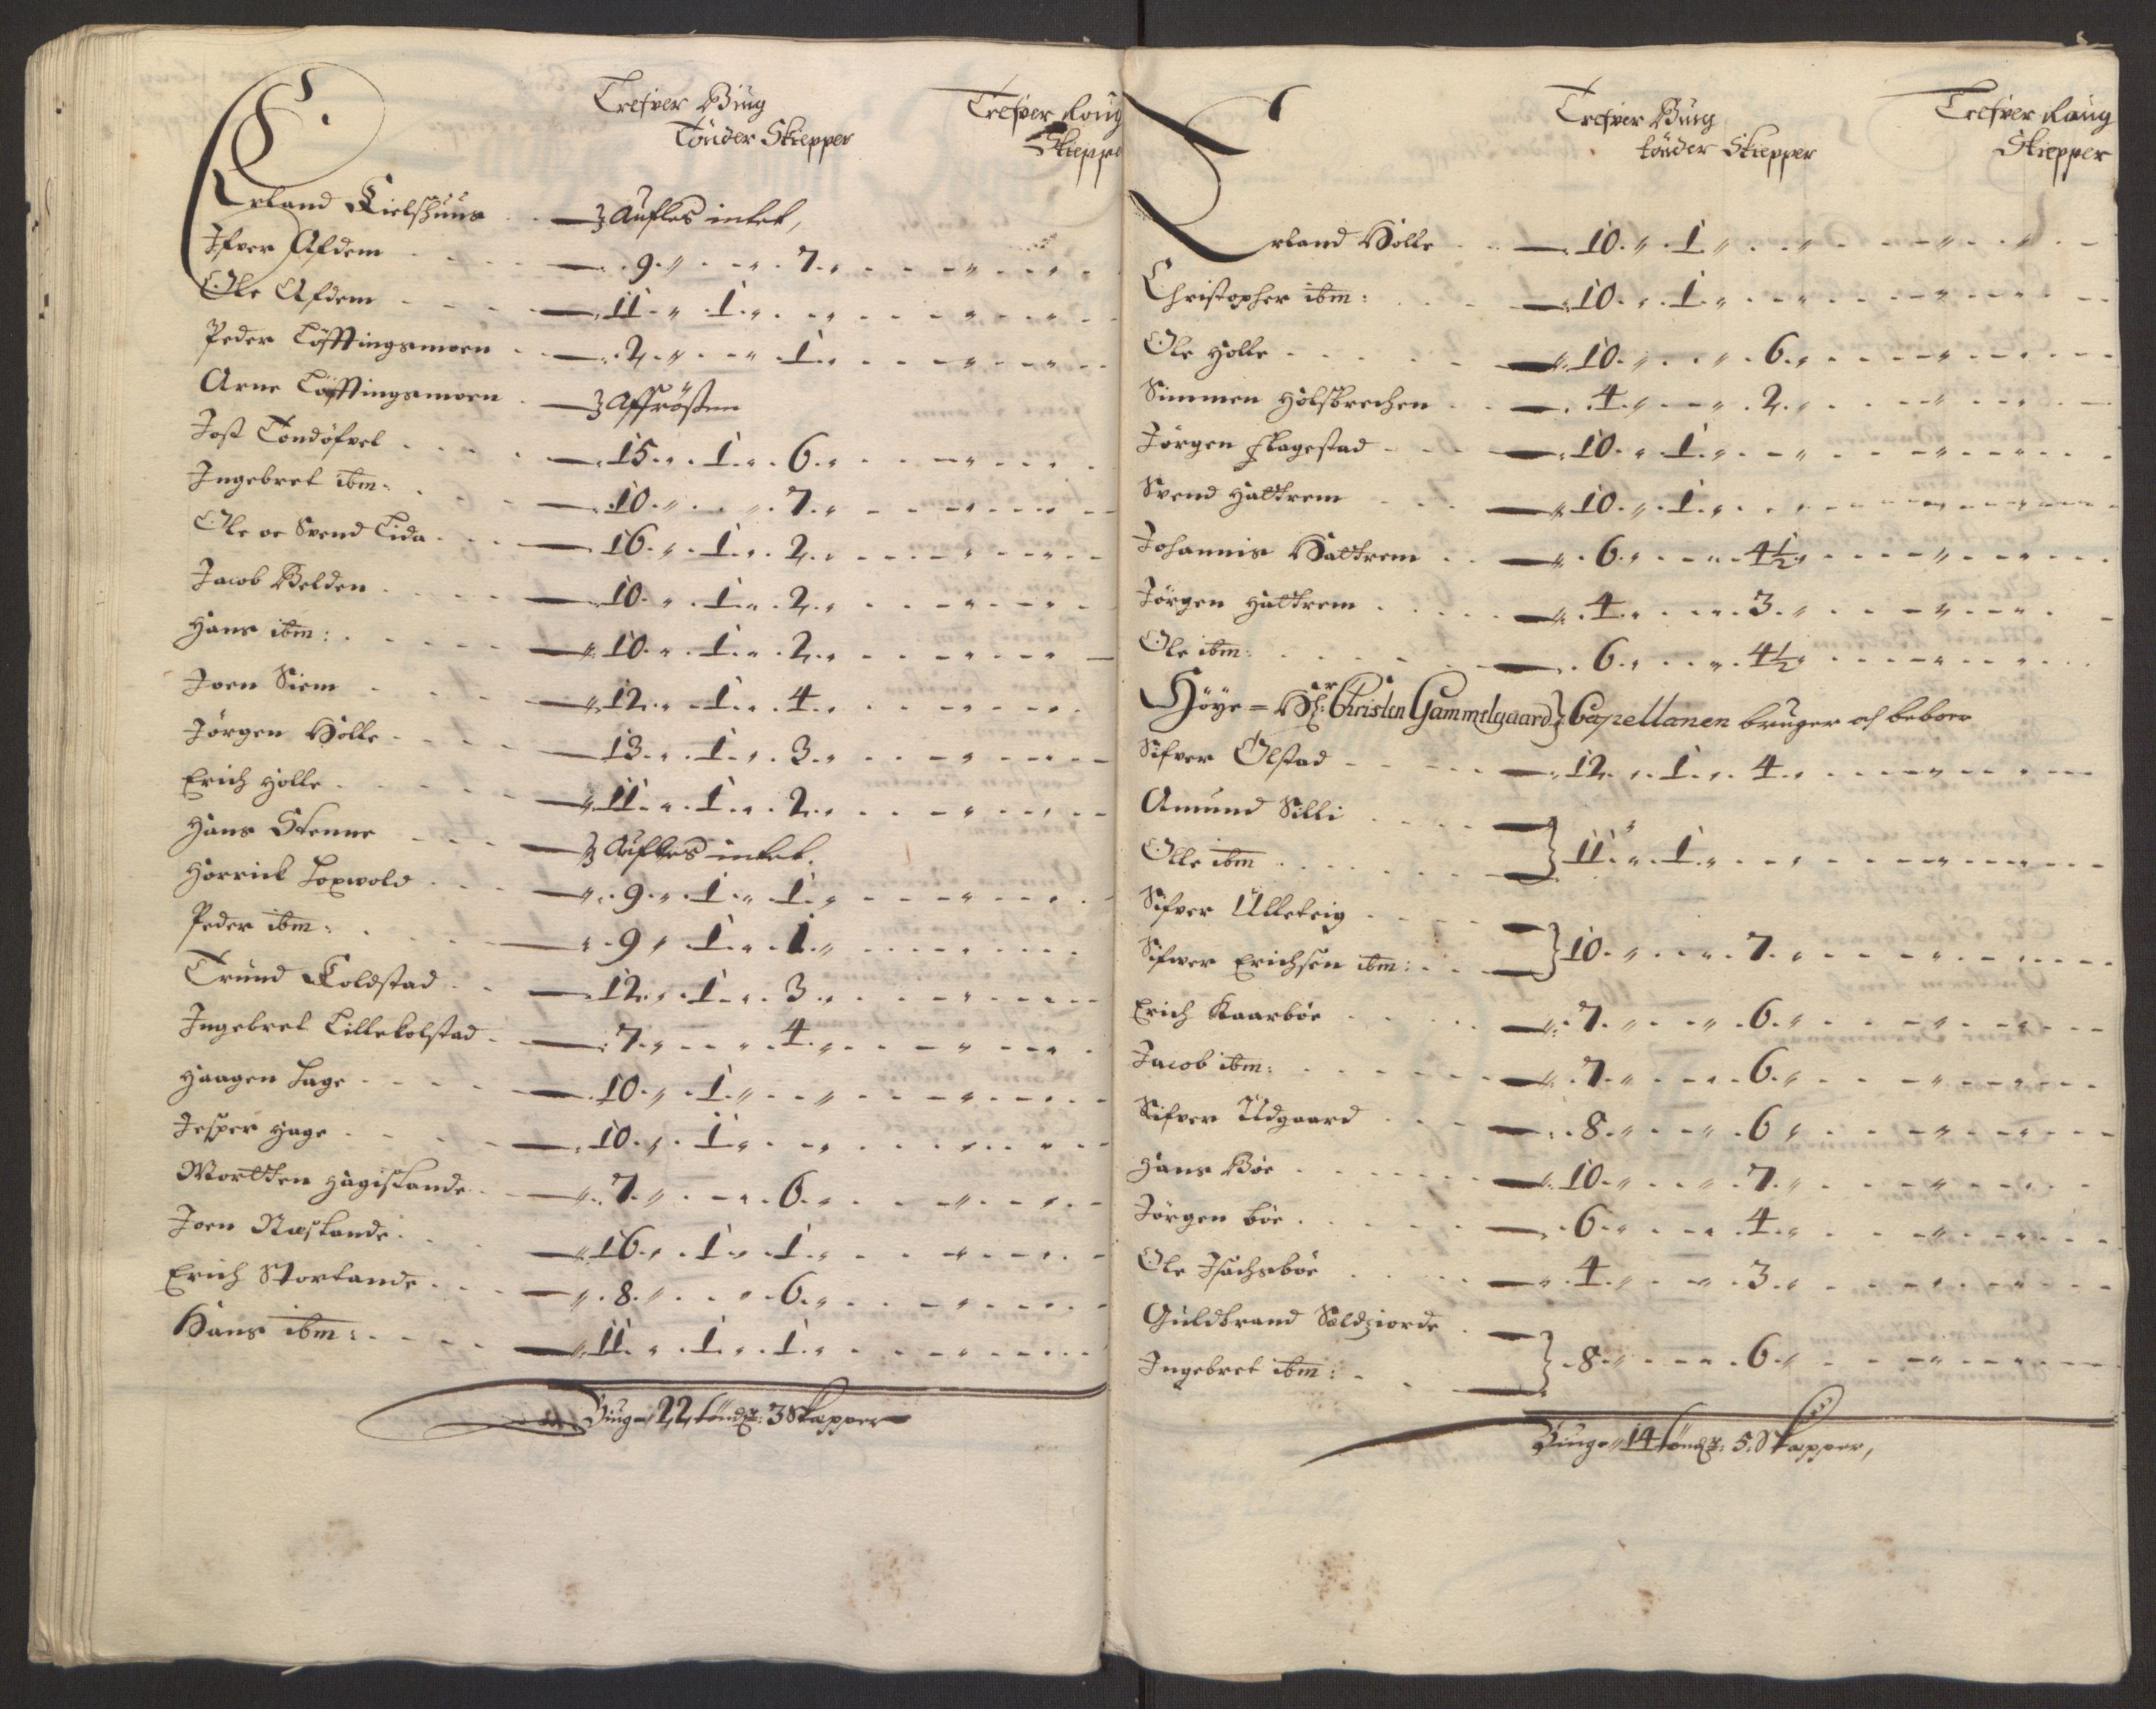 Trefver Biug
Tönder Skiepper
Trefver Roug
Skieppe
Erland Kielshuus — Aufles intet,
Ifver Alfdem — 9 „ 7
Ole Alfdem — 11 „ 1
Peder Löfftingsmoen — 2 „ 1
Arne Löfftingsmoen — Affrösten
Jost Tondöfvel — 15 „ 1 „ 6
Ingebret ibm: — 10 „ 7
Ole oc Svend Lida — 16 „ 1 „ 2
Jacob Belden — 10 „ 1 „ 2
Hans ibm: — 10 „ 1 „ 2
Joen Siem — 12 „ 1 „ 4
Jörgen Holle — 13 „ 1 „ 3
Erich Holle — 11 „ 1 „ 2
Hans Stenne — Aufles intet.
Horrick Loxwold — 9 „ 1 „ 1
Peder ibm: — 9 „ 1 „ 1
Trund Koldstad — 12 „ 1 „ 3
Ingebret Lillekolstad — 7 „ 4
Haagen Hage — 10 „ 1
Jesper Hage — 10 „ 1
Mortten Hagistande — 7 „ 6
Joen Næstande — 16 „ 1 „ 1
Erich Stortande — 8 „ 6
Hans ibm: — 11 „ 1 „ 1
Biug 22 tönd: 3 Skepper
Trefver Biug
tönder Skiepper
Trefver Raug
Skiepper
Erland Holle — 10 „ 1
Christopher ibm: — 10 „ 1
Ole Holle — 10 „ 6
Simmen Holsbrechen — 4 „ 2
Jörgen Flagestad — 10 „ 1
Svend Haltrem — 10 „ 1
Johannis Haltrem — 6 „ 4½
Jörgen Haltrem — 4 „ 3
Ole ibm: — 6 „ 4½
Höye = Hr: Christen Gammelgaard Capellanen bruger och beboer
Sifver Olstad — 12 „ 1 „ 4
Amund Silli
Olle ibm — 11 „ 1
Sifver Ulleteig
Sifwer Erichsen ibm: — 10 „ 7
Erich Kaarböe — 7 „ 6
Jacob ibm: — 7 „ 6
Sifver Udgaard — 8 „ 6
Hans Böe — 10 „ 7
Jörgen böe — 6 „ 4
Ole Isachsböe — 4 „ 3
Guldbrand Soldziorde
Ingebret ibm: — 8 „ 6
Biug 14 tönd: 5 Skepper,